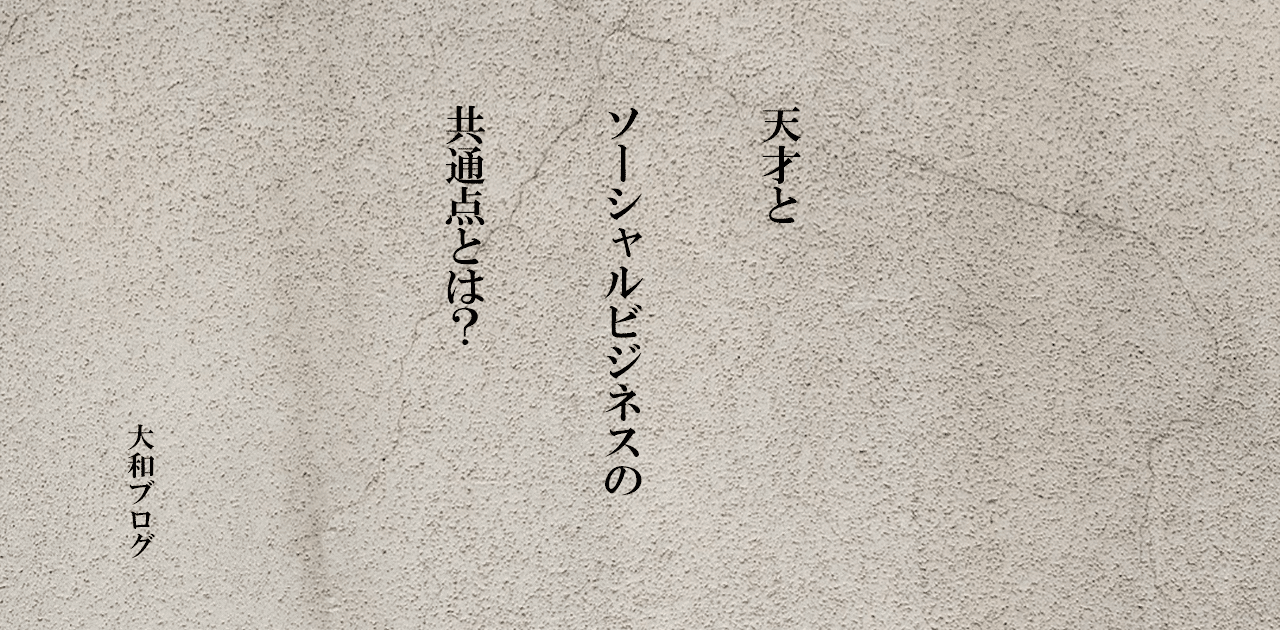 天才と
ソーシャルビジネスの
共通点とは？
大和ブログ